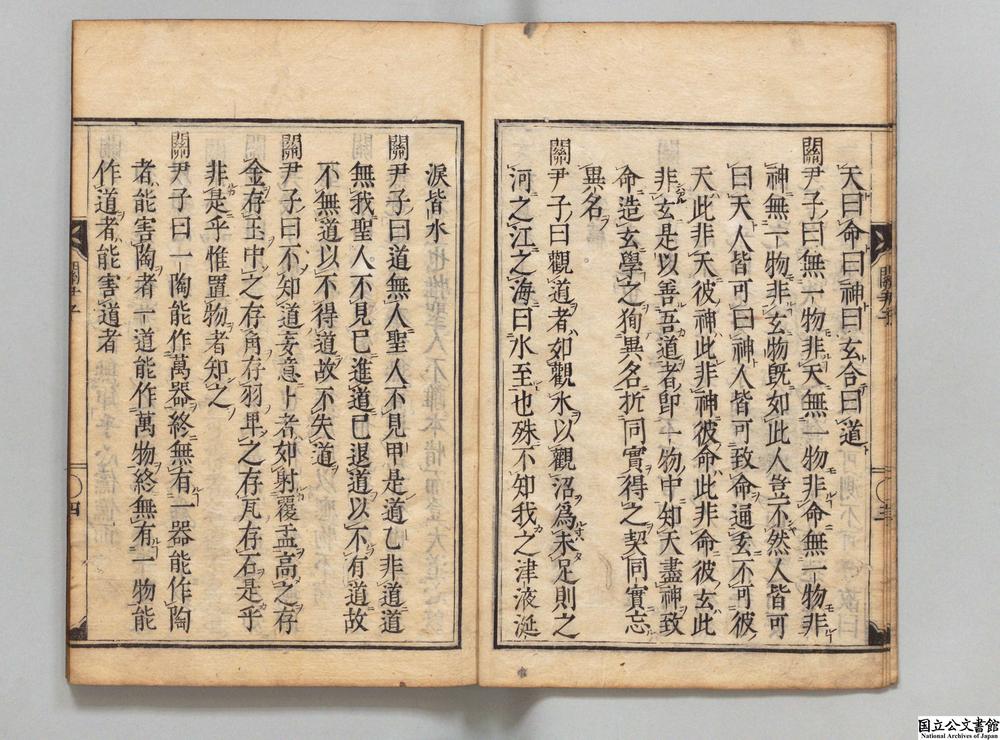 天曰命曰神曰玄合曰道
關尹子曰無一物非天無一物非命無一物非
神無一物非玄物旣如此人豈不然人皆可
曰天人皆可曰神人皆可致命通玄不可彼
天此非天彼神此非神彼命此非命彼玄此
非玄是以善吾道者卽一物中知天盡神致
命造玄學之徇異名析同實得之契同實忘
異名
關尹子曰觀道者如觀水以觀沼爲未足則之
河之江之海曰水至也殊不知我之津液涎
淚皆水
關尹子曰道無人聖人不見甲是道乙非道道
無我聖人不見己進道己退道以不有道故
不無道以不得道故不失道
關尹子曰不知道妄意卜者如射覆盂高之存
金存玉中之存角存羽卑之存瓦存石是乎
非是乎惟置物者知之
關尹子曰一陶能作萬器終無有一器能作陶
者能害陶者一道能作萬物終無有一物能
作道者能害道者
關尹子
三
關尹子
四
国立公文書館
National Archives of Japan